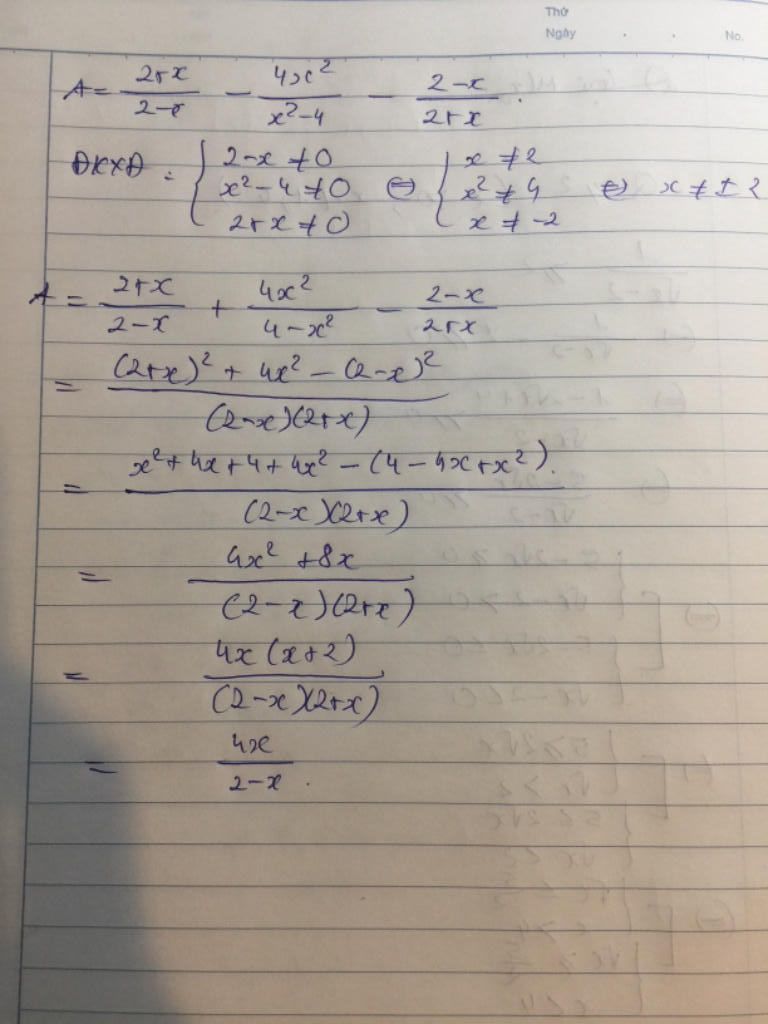 Thứ
Ngày . . No.
A = (2+x)/(2-x) - 4x²/(x²-4) - (2-x)/(2+x) .
ĐKXĐ : { 2-x ≠ 0 ; x²-4 ≠ 0 ; 2+x ≠ 0 ⇔ { x ≠ 2 ; x² ≠ 4 ; x ≠ -2 ⇔ x ≠ ± 2
A = (2+x)/(2-x) + 4x²/(4-x²) - (2-x)/(2+x)
= ((2+x)² + 4x² - (2-x)²)/((2-x)(2+x))
= (x²+4x+4+4x² - (4-4x+x²).)/((2-x)(2+x))
= (4x² +8x)/((2-x)(2+x))
= (4x(x+2))/((2-x)(2+x))
= 4x/(2-x) .